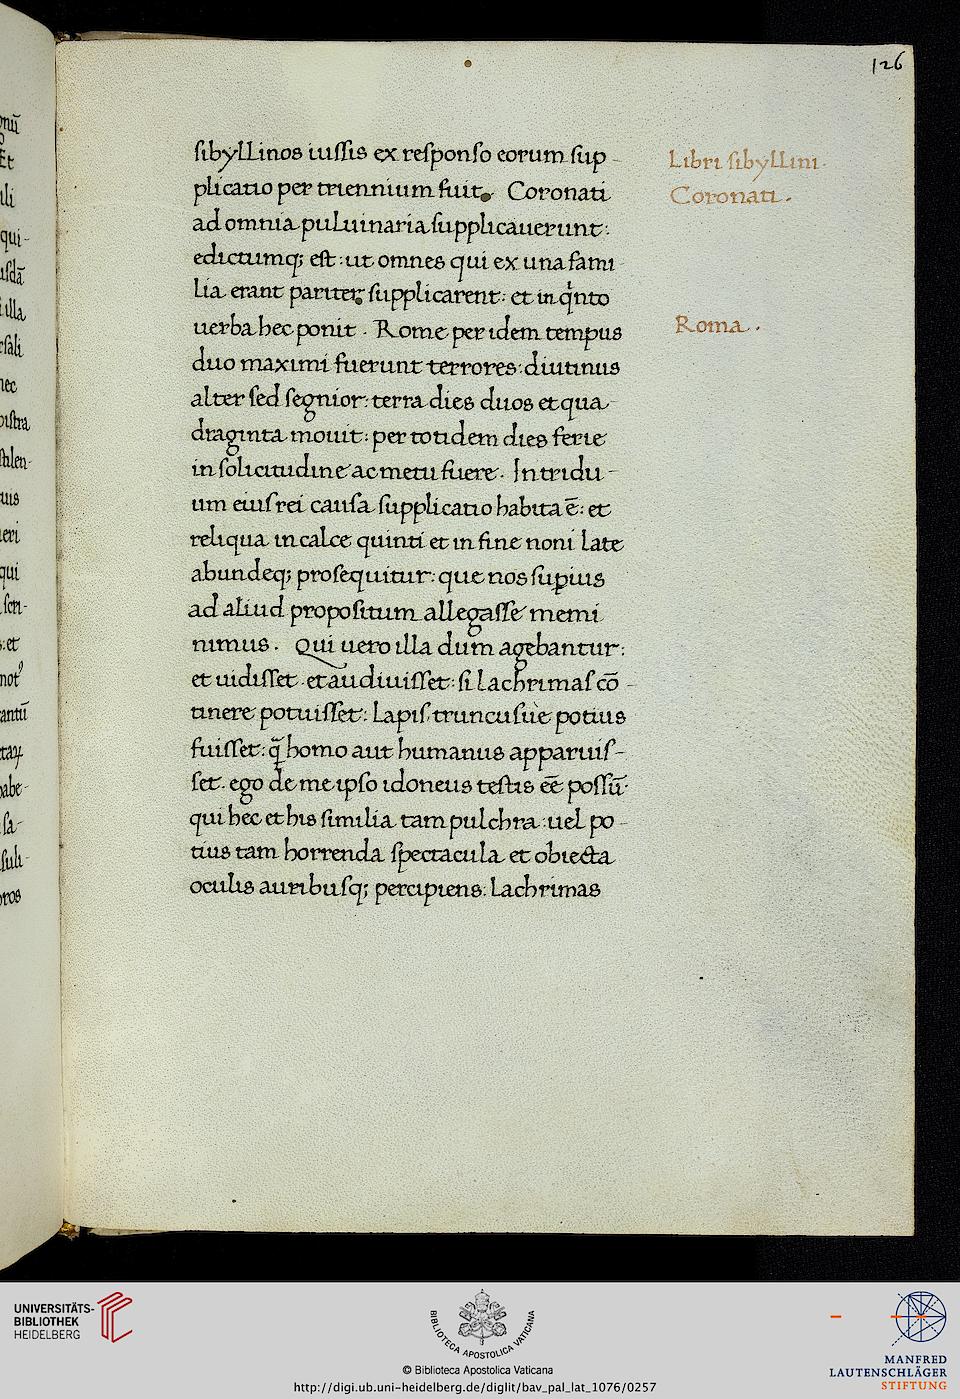 126
sibyllinos iussis ex responso eorum sup-
plicatio per triennium fuit. Coronati
ad omnia puluinaria supplicauerunt:
edictumq; est: ut omnes qui ex una fami-
lia erant pariter supplicarent: et in qͥnto
uerba hec ponit. Rome per idem tempus
duo maximi fuerunt terrores: diutinus
alter sed segnior: terra dies duos et qua-
draginta mouit: per totidem dies ferie
in solicitudine ac metu fuere. In tridu-
um eius rei causa supplicatio habita ē: et
reliqua in calce quinti et in fine noni late
abundeq; prosequitur: que nos suꝑius
ad aliud propositum allegasse memi
nimus. Qui uero illa dum agebantur:
et uidisset et audiuisset: si lachrimas cō-
tinere potuisset: lapis, truncusue potius
fuisset: q̄ homo aut humanus apparuis-
set. ego de me ipso idoneus testis eē possū.
qui hec et his similia tam pulchra: uel po-
tius tam horrenda spectacula et obiecta
oculis auribusq; percipiens: lachrimas
Libri sibyllini.
Coronati.
Roma.
UNIVERSITÄTS-
BIBLIOTHEK
HEIDELBERG
BIBLIOTECA APOSTOLICA VATICANA
© Biblioteca Apostolica Vaticana
http://digi.ub.uni-heidelberg.de/diglit/bav_pal_lat_1076/0257
MANFRED
LAUTENSCHLÄGER
STIFTUNG